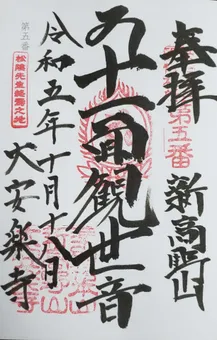 奉拝
第五番
新高野山
十一面観世音
令和五年十月十八日
大安楽寺
第五番
松陰先生終焉之地